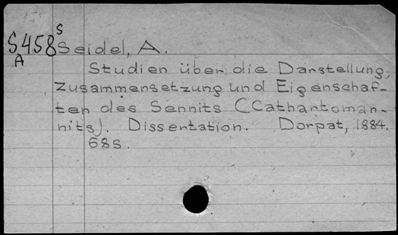 S
S458 Seidel, A.
A
Studien über die Darstellung,
Zusammensetzung und Eigenschaf-
ten des Sennits (Cathartoman-
nits). Dissertation. Dorpat, 1884.
68s.